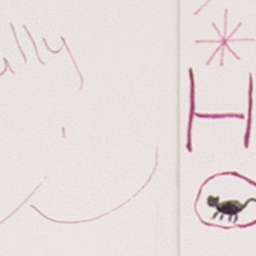 ully
H